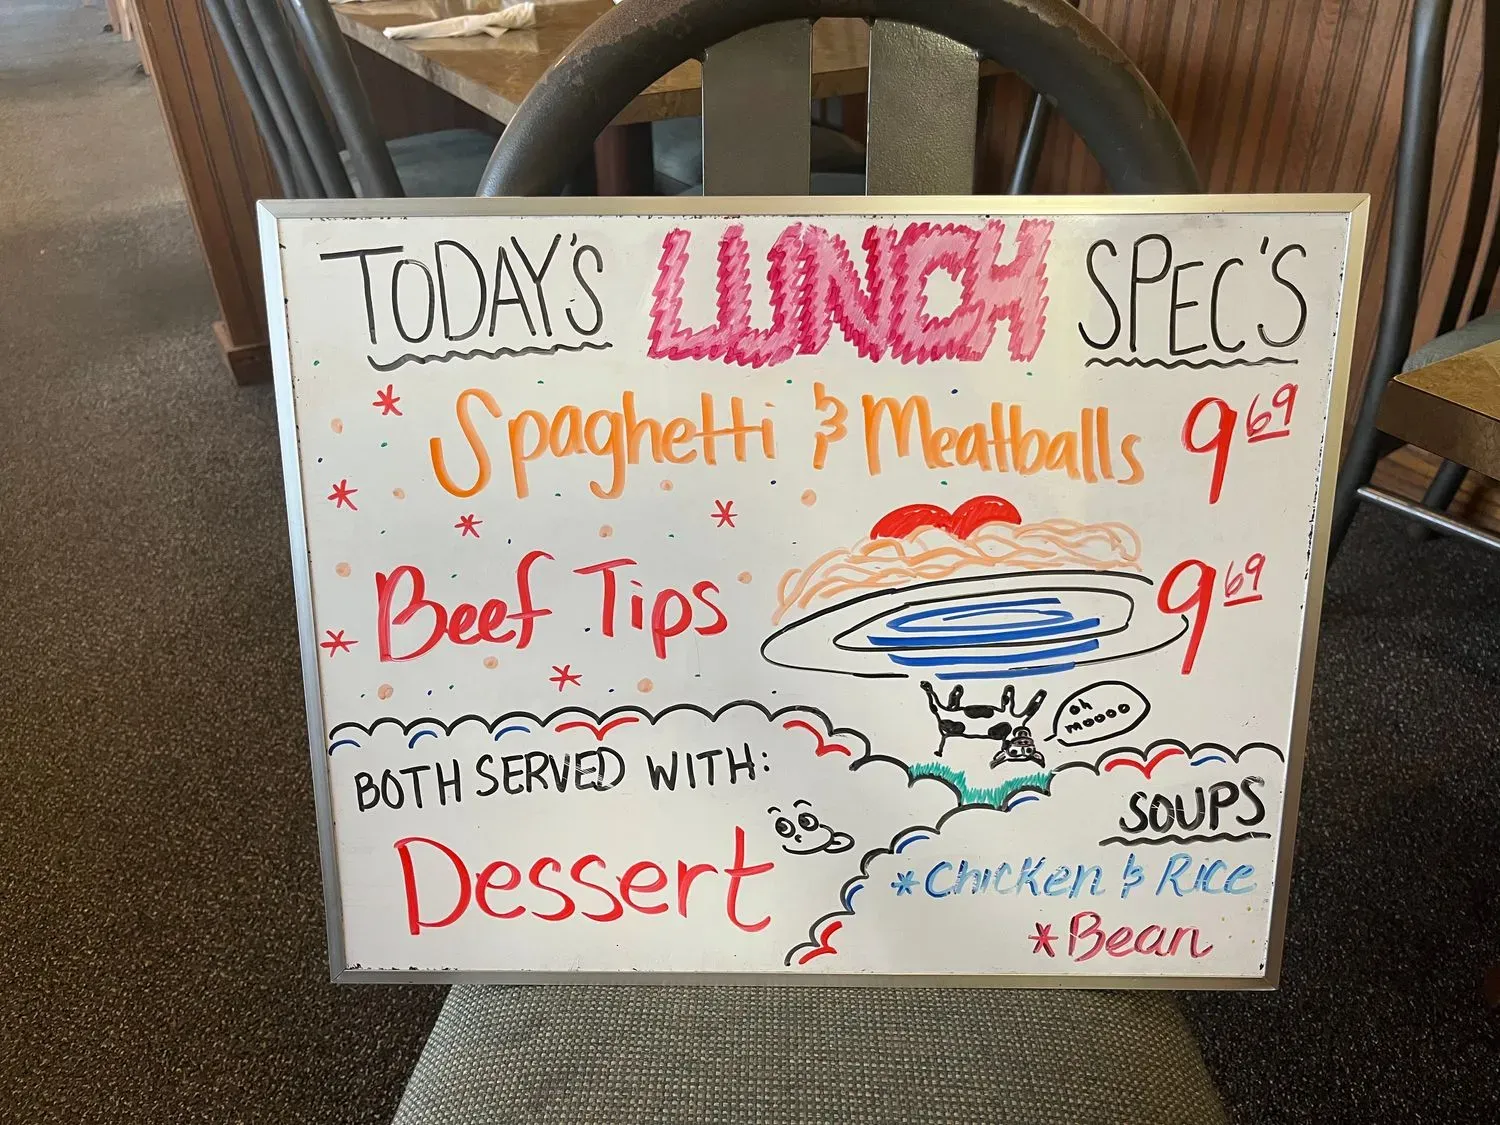 TODAY'S LUNCH SPEC'S
Spaghetti & Meatballs 9.69
Beef Tips 9.69
oh
moooo
BOTH SERVED WITH:
Dessert
SOUPS
*Chicken & Rice
*Bean